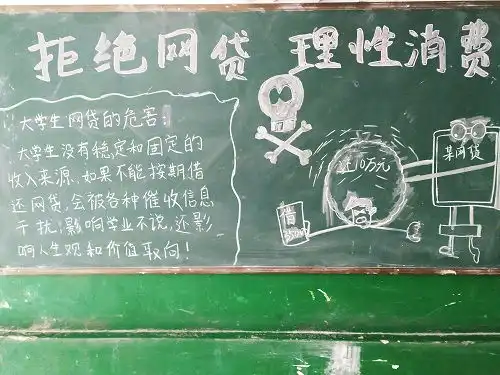 拒绝网贷 理性消费
大学生网贷的危害:
大学生没有稳定和固定的
收入来源、如果不能按期偿
还网贷,会被各种催收信息
干扰!影响学业不说,还影
响人生观和价值取向!
还10万元
某网贷
借